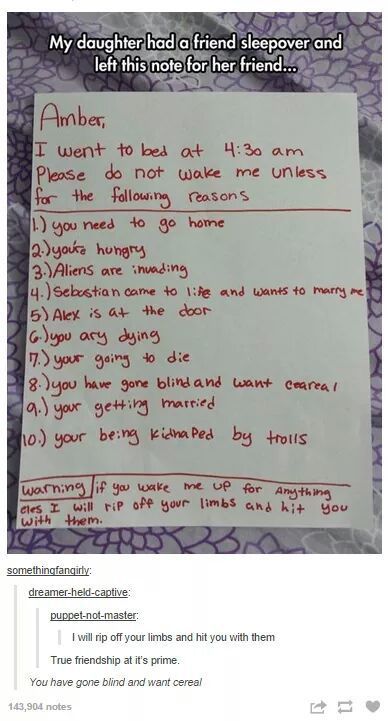 My daughter had a friend sleepover and
left this note for her friend...
Amber,
I went to bed at 4:30 am
Please do not wake me unless
for the following reasons
1.) you need to go home
2.) your's hungry
3.) Aliens are invading
4.) Sebastian came to life and wants to marry me
5) Alex is at the door
6.) you ary dying
7.) your going to die
8.) you have gone blind and want ceareal
9.) your getting married
10.) your being kidnaped by trolls
warning if you wake me up for Anything
eles I will rip off your limbs and hit you
with them.
somethingfangirly:
dreamer-held-captive:
puppet-not-master:
I will rip off your limbs and hit you with them
True friendship at it's prime.
You have gone blind and want cereal
143,904 notes